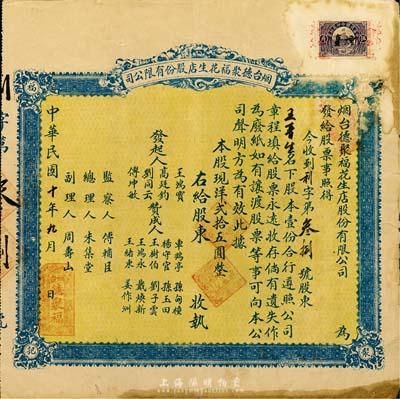 烟台德聚福花生店股份有限公司
福
烟台德聚福花生店股份有限公司 為
發給股票事照得
今收到利字第叁捌號股東
名下股本壹份合行遵照公司
章程填給股票永遠收存倘有遺失作
為廢紙如有讓渡股票等事可向本公
司聲明方為有效此據
本股現洋貳拾五圓整
右給股東 收執
發起人 王鴻賓 高廷鈞 劉同云 傅坤敏
贊成人 車鶴亭 楊守官 王樹伯 王為永 王緒東
孫甸種 孫玉田 劉子雲 戴煥新 姜作洲
監察人 傅補臣
總理人 朱集堂
副理人 周壽山
中華民國十年九月 日
聚
記
上海陽明拍賣